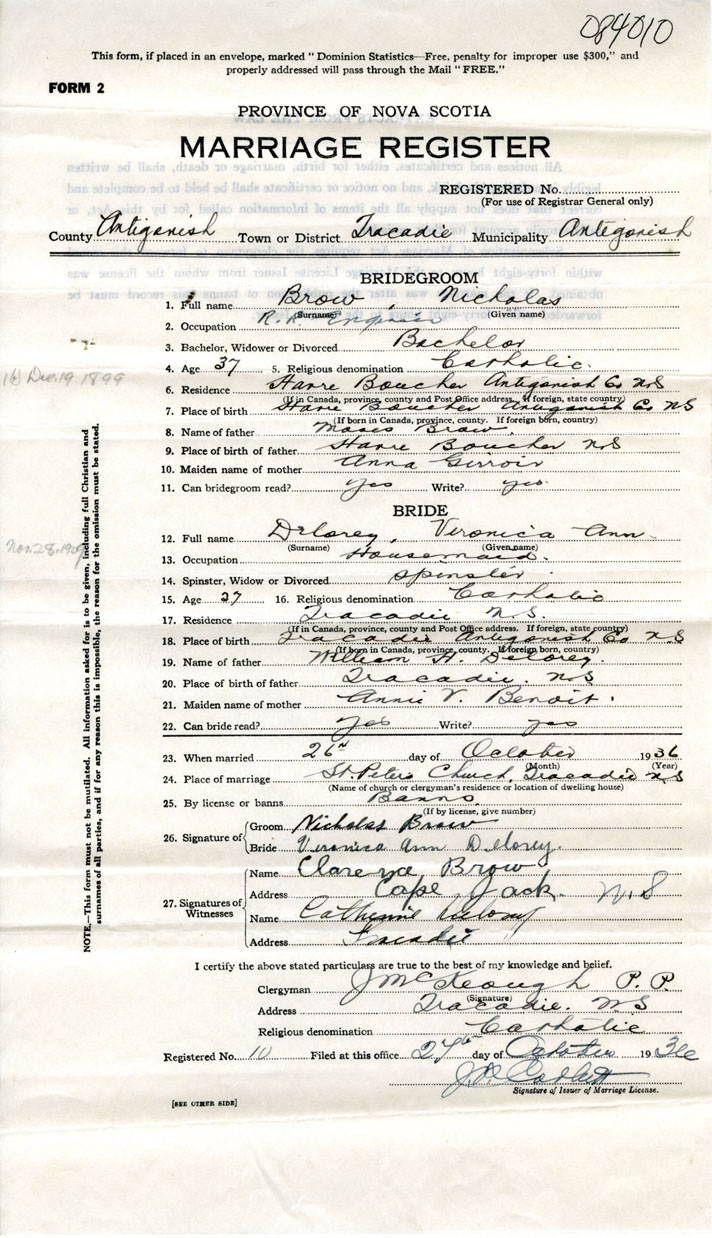 084010
This form, if placed in an envelope, marked "Dominion Statistics—Free, penalty for improper use $300," and
properly addressed will pass through the Mail "FREE."
FORM 2
PROVINCE OF NOVA SCOTIA
MARRIAGE REGISTER
REGISTERED No.
(For use of Registrar General only)
County Antigonish Town or District Tracadie Municipality Antigonish
BRIDEGROOM
1. Full name Brow, Nicholas
(Surname) (Given name)
2. Occupation R.R. Engineer
3. Bachelor, Widower or Divorced Bachelor
4. Age 37 5. Religious denomination Catholic
(6) Dec. 19, 1899
6. Residence Havre Boucher Antigonish Co NS
(If in Canada, province, county and Post Office address. If foreign, state country)
7. Place of birth Havre Boucher Antigonish Co NS
(If born in Canada, province, county. If foreign born, country)
8. Name of father Moses Brow
9. Place of birth of father Havre Boucher NS
10. Maiden name of mother Anna Girroir
11. Can bridegroom read? Yes Write? yes
BRIDE
12. Full name Delorey, Veronica Ann
(Surname) (Given name)
Nov. 28, 1909
13. Occupation Housemaid
14. Spinster, Widow or Divorced Spinster
15. Age 27 16. Religious denomination Catholic
17. Residence Tracadie N.S.
(If in Canada, province, county and Post Office address. If foreign, state country)
18. Place of birth Tracadie Antigonish Co NS
(If born in Canada, province, county. If foreign born, country)
19. Name of father William H. Delorey
20. Place of birth of father Tracadie. NS
21. Maiden name of mother Annie V. Benoit
22. Can bride read? yes Write? yes
23. When married 26th day of October 1936
(Month) (Year)
24. Place of marriage St. Peters Church, Tracadie NS
(Name of church or clergyman's residence or location of dwelling house)
25. By license or banns Banns
(If by license, give number)
26. Signature of Groom Nicholas Brow
Bride Veronica Ann Delorey.
27. Signatures of Witnesses
Name Clarence Brow
Address Cape Jack N.S
Name Catherine
Address Tracadie
NOTE.—This form must not be mutilated. All information asked for is to be given, including full Christian and
surnames of all parties, and if for any reason this is impossible, the reason for the omission must be stated.
I certify the above stated particulars are true to the best of my knowledge and belief.
Clergyman J McKeough P. P.
(Signature)
Address Tracadie. NS
Religious denomination Catholic
Registered No. 10 Filed at this office 27th day of October 1936
Signature of Issuer of Marriage License.
[SEE OTHER SIDE]